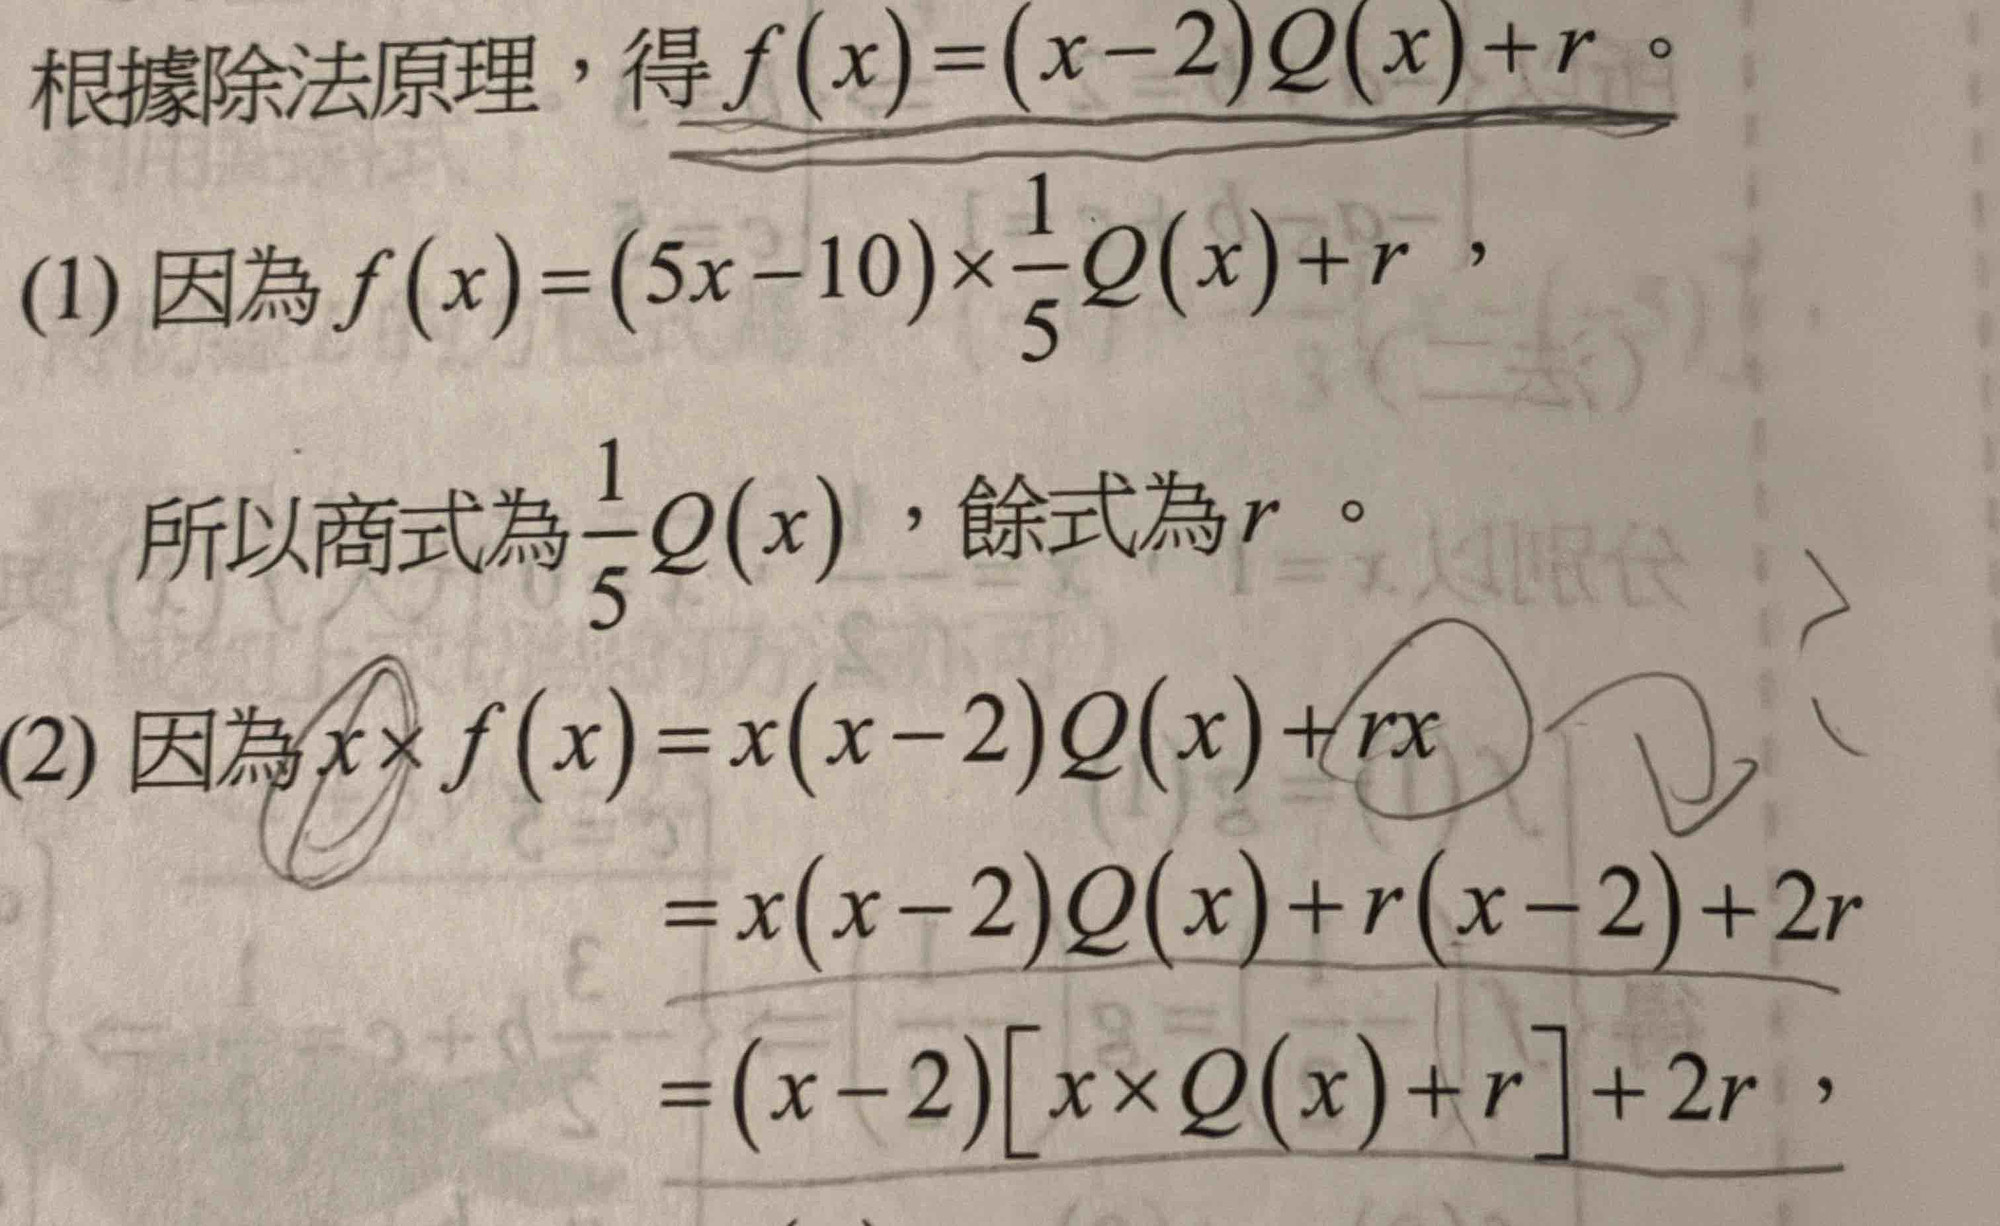 根據除法原理，得 f(x)=(x−2)Q(x)+r。
(1) 因為 f(x)=(5x−10)×1/5 Q(x)+r，
所以商式為 1/5 Q(x)，餘式為 r。
(2) 因為 x×f(x)=x(x−2)Q(x)+rx
=x(x−2)Q(x)+r(x−2)+2r
=(x−2)[x×Q(x)+r]+2r，